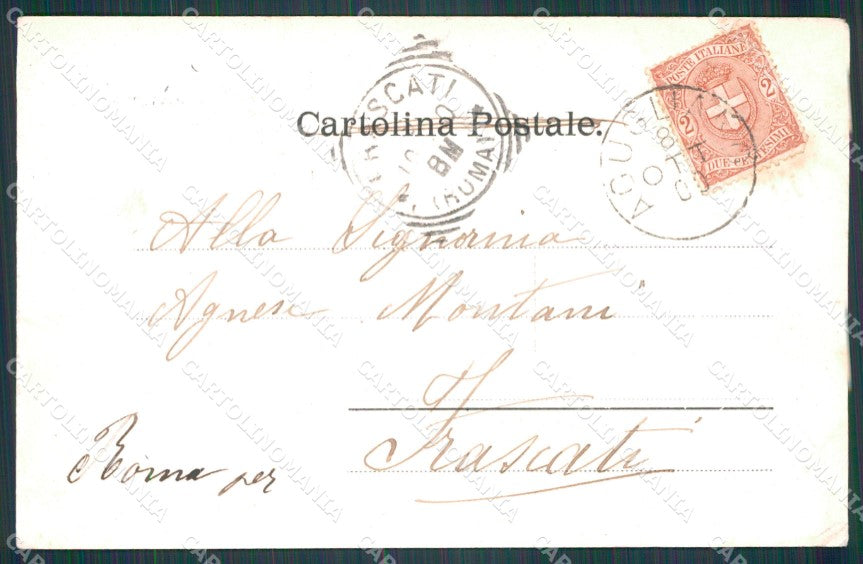 Cartolina Postale.
POSTE ITALIANE
2 2
DUE CENTESIMI
FRASCATI
(ROMA)
Alla Signorina
Agnese Montani
Frascati
Roma per
CARTOLINOMANIA